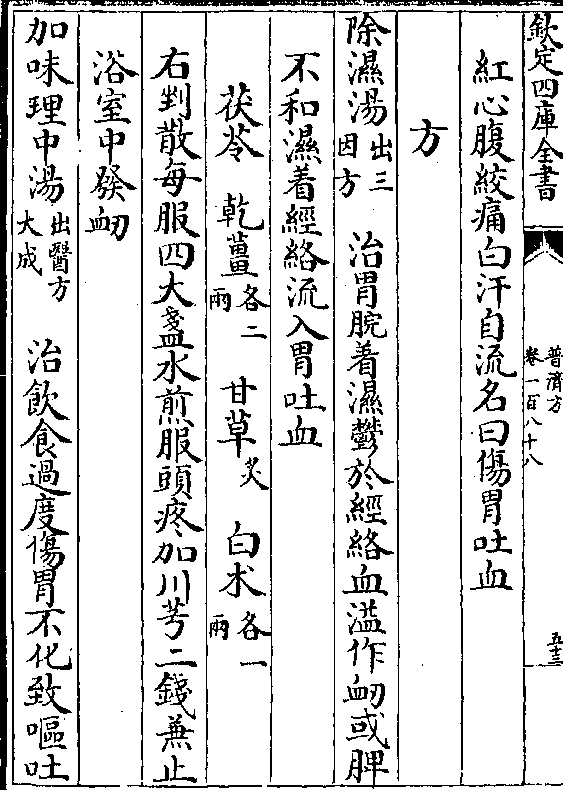 欽定四庫全書
普濟方
卷一百八十八
五十三
紅心腹絞痛白汗自流名曰傷胃吐血
方
除濕湯出三因方 治胃脘着濕鬱於經絡血溢作衂或脾
不和濕着經絡流入胃吐血
茯苓 乾薑各二兩 甘草炙 白朮各一兩
右剉散每服四大盞水煎服頭疼加川芎二錢兼止
浴室中發衂
加味理中湯出醫方大成 治飲食過度傷胃不化致嘔吐